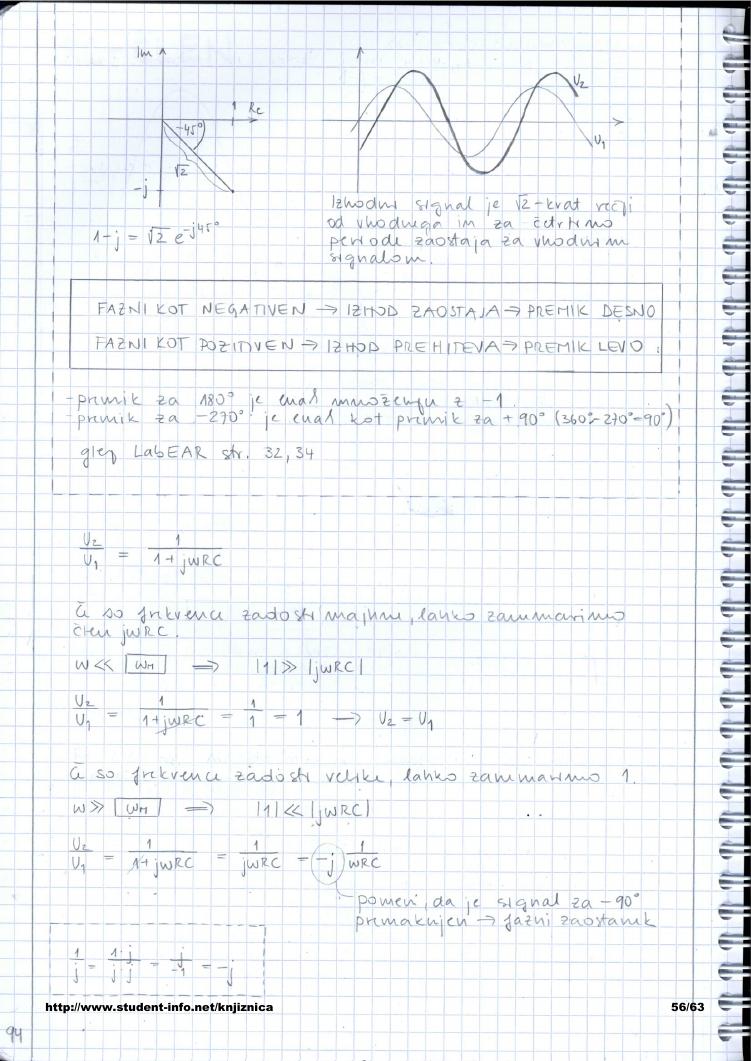 Im
1 Re
-45°
√2
-j
1-j = √2 e^-j45°
U₂
U₁
Izhodni signal je √2-krat večji
od vhodnega in za četrtino
periode zaostaja za vhodnim
signalom.
FAZNI KOT NEGATIVEN → IZHOD ZAOSTAJA → PREMIK DESNO
FAZNI KOT POZITIVEN → IZHOD PREHITEVA → PREMIK LEVO.
-premik za 180° je enak množenju z -1.
-premik za -270° je enak kot premik za +90° (360°-270°=90°)
glej LabEAR str. 32, 34
U₂/U₁ = 1/(1+jωRC)
Če so frekvence zadosti majhne, lahko zanemarimo
člen jωRC.
ω << ωM ⇒ |1| >> |jωRC|
U₂/U₁ = 1/(1+jωRC) = 1/1 = 1 → U₂ = U₁
Če so frekvence zadosti velike, lahko zanemarimo 1.
ω >> ωM ⇒ |1| << |jωRC|
U₂/U₁ = 1/(1+jωRC) = 1/(jωRC) = -j 1/(ωRC)
pomeni, da je signal za -90°
premaknjen → fazni zaostanek
1/j = (1·j)/(j·j) = j/-1 = -j
http://www.student-info.net/knjiznica
56/63
94